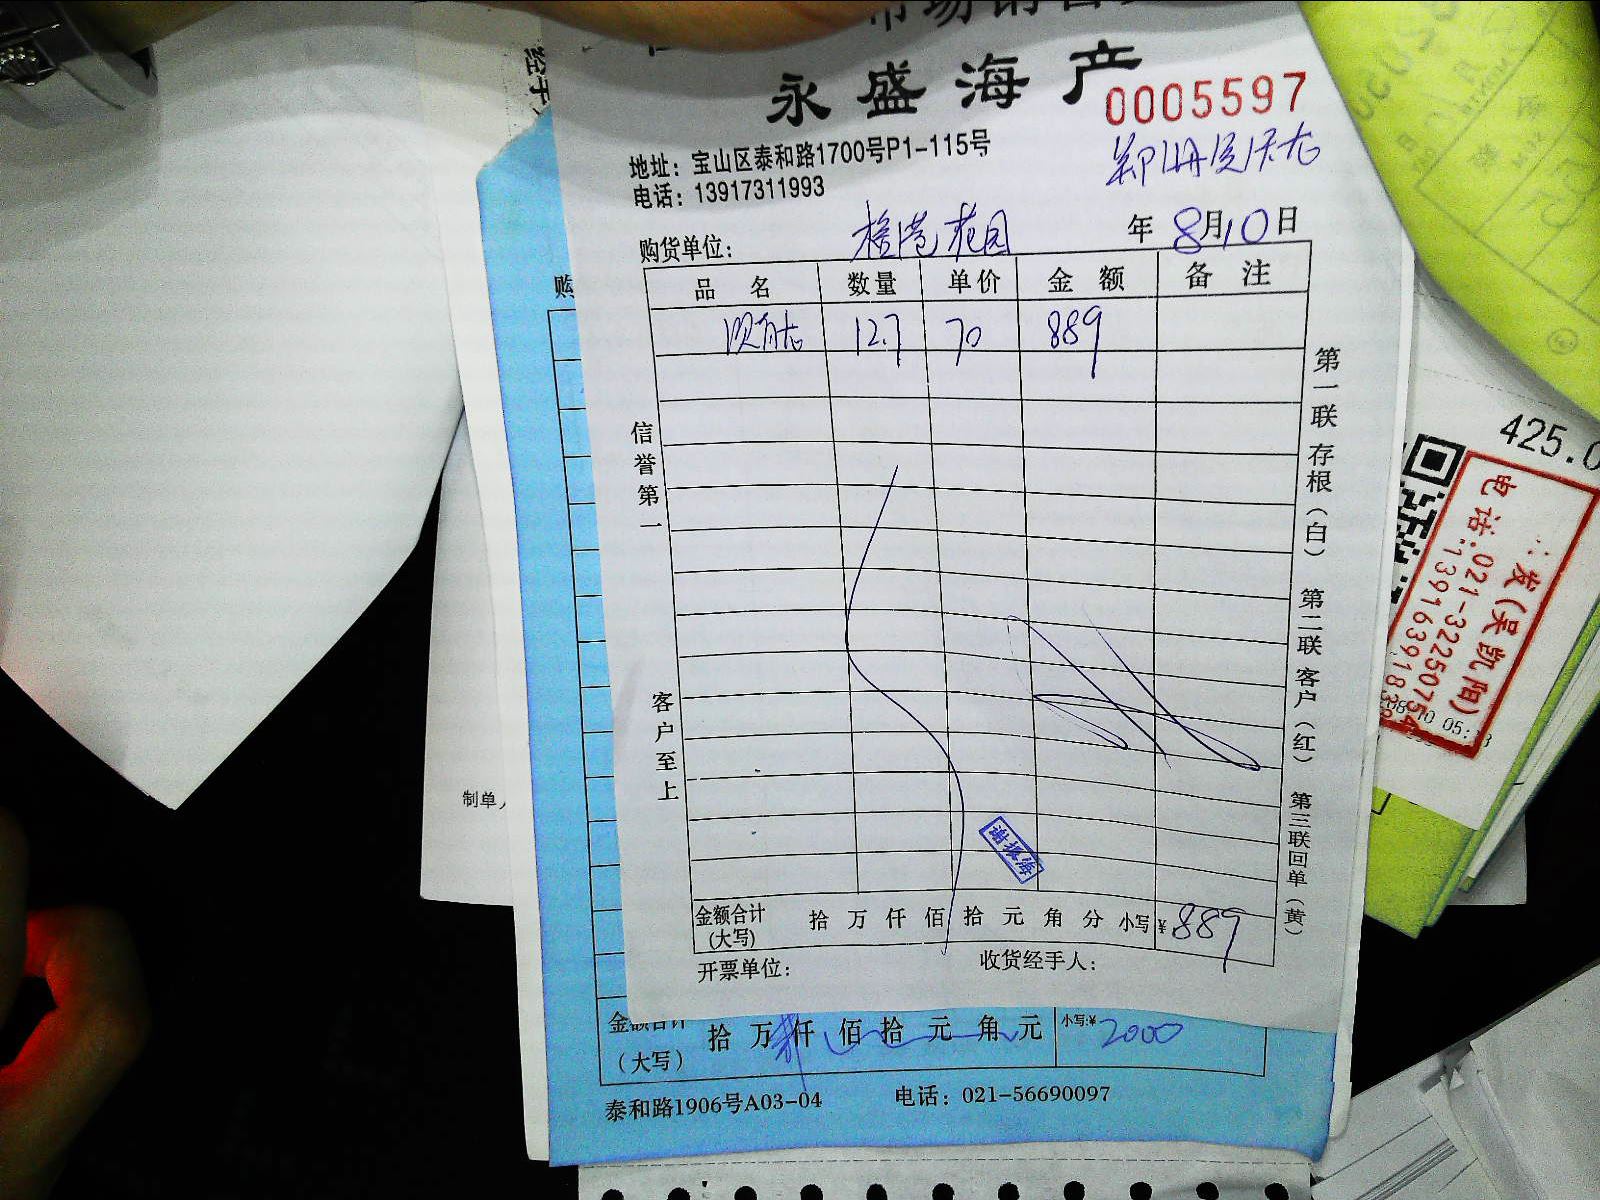 永盛海产
0005597
地址：宝山区泰和路1700号P1-115号
电话：13917311993
购货单位：
花园
年 8月10日
品名 数量 单价 金额 备注
12.7 70 889
信誉第一
客户至上
第一联 存根（白） 第二联 客户（红） 第三联 回单（黄）
谢振海
金额合计 拾 万 仟 佰 拾 元 角 分 小写 ¥889
(大写)
开票单位： 收货经手人：
购
制单人
金额合计 拾 万 仟 佰 拾 元 角 元 小写:¥ 2000
（大写）
泰和路1906号A03-04 电话：021-56690097
425.0
发(吴凯阳)
电话:021-32250754